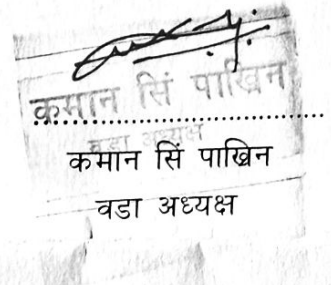 कमान सिं पाखिन
वडा अध्यक्ष
कमान सिं पाखिन
वडा अध्यक्ष